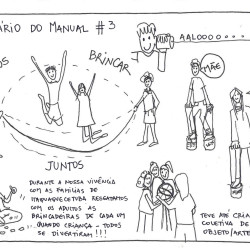 ÁRIO DO MANUAL #3
AALOOOO...
OS
BRINCAR
MÃE
JUNTOS
DURANTE A NOSSA VIVÊNCIA
COM AS FAMÍLIAS DE
ITAQUAQUECETUBA RESGATAMOS
COM OS ADULTOS AS
BRINCADEIRAS DE CADA UM
QUANDO CRIANÇA - TODOS
SE DIVERTIRAM!!!
TEVE ATÉ CRIA
COLETIVA DE
OBJETO/ARTE